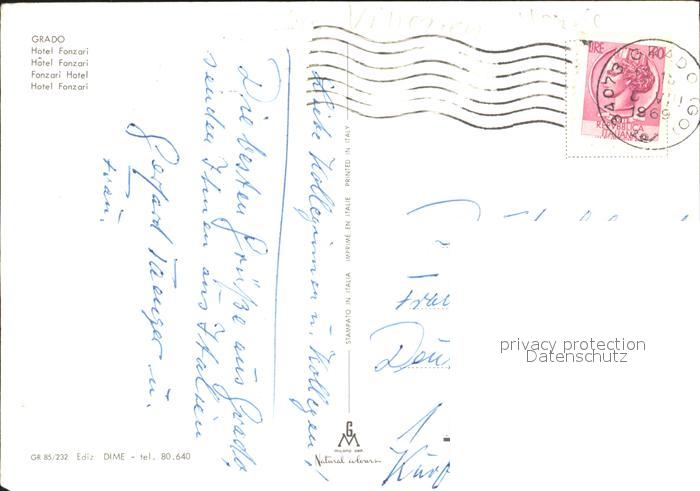 GRADO
Hotel Fonzari
Hôtel Fonzari
Fonzari Hotel
Hotel Fonzari
Liebe Kolleginnen u. Kollegen!
Die besten Grüße aus Grado,
senden Ihnen aus Italien
Gerhard u.
Frau.
STAMPATO IN ITALIA IMPRIMÉ EN ITALIE PRINTED IN ITALY
LIRE 40
REPUBBLICA
ITALIANA
GRADO (GO)
privacy protection
Datenschutz
1
GM
milano dep.
Natural colours
GR 85/232 Ediz DIME - tel. 80.640